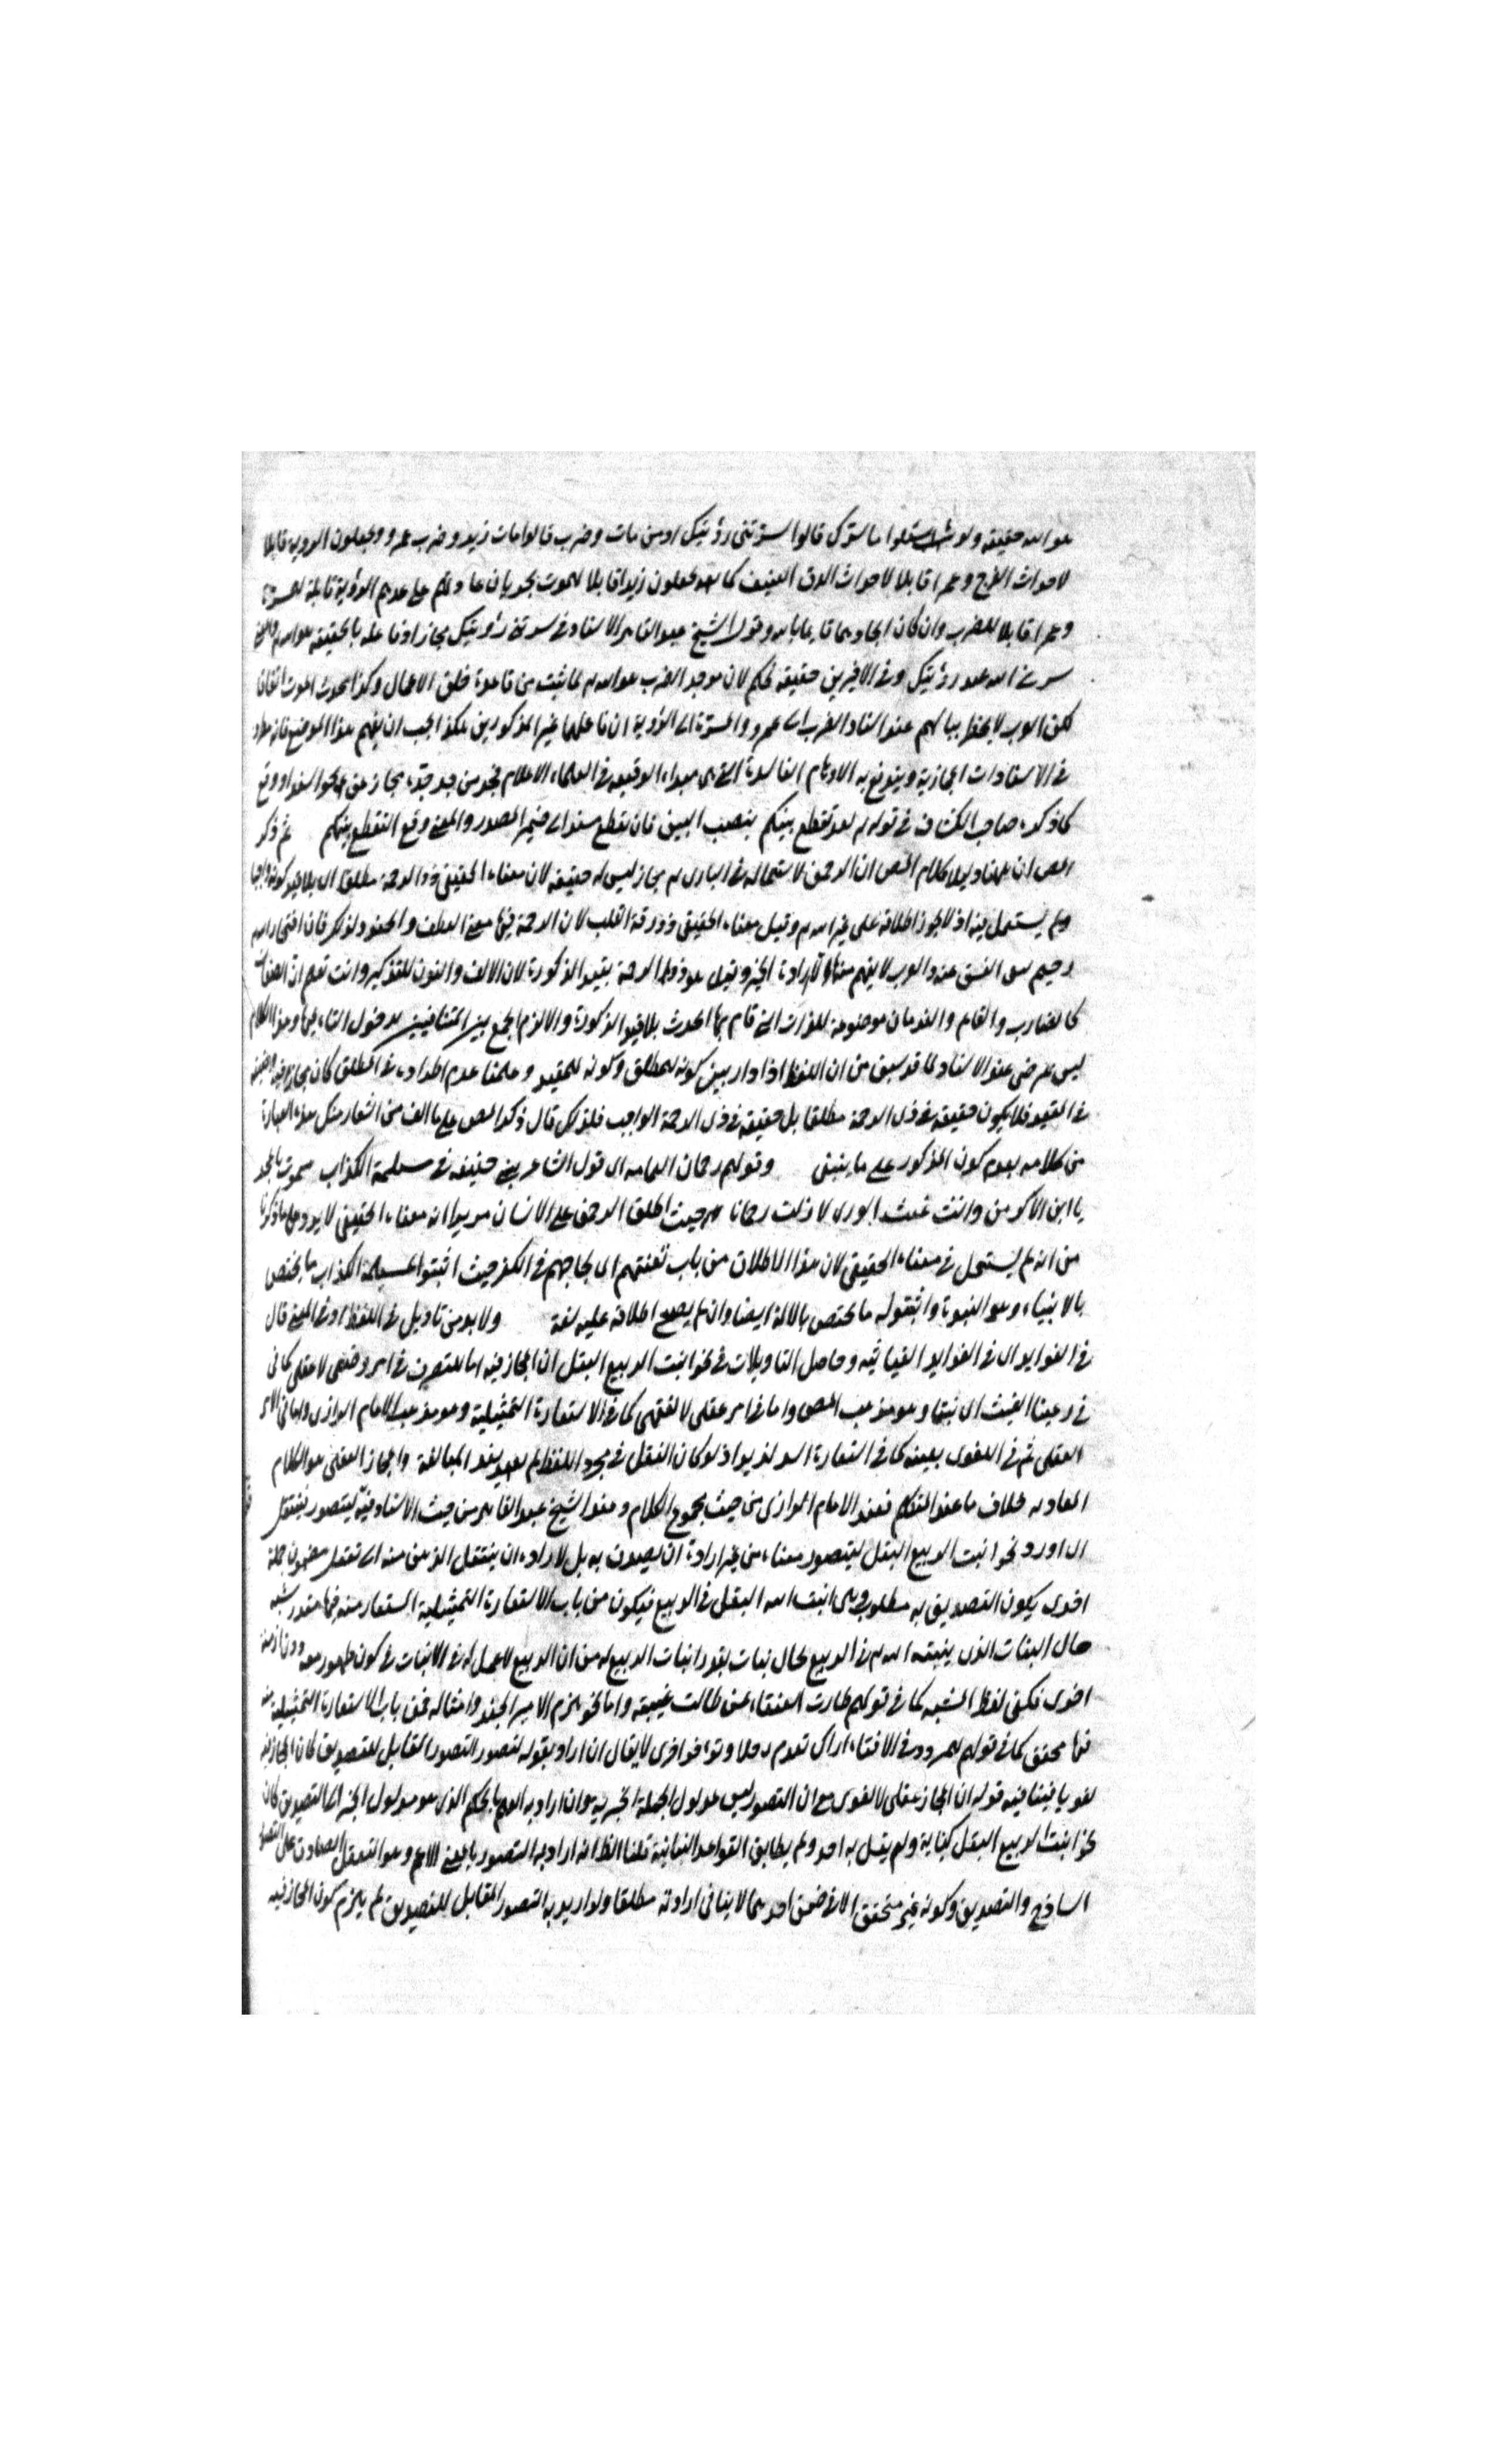 هو الله حقيقة ولو سئلوا ما سرك قالوا سرتنى رؤيتك او من مات وضرب قالوا مات زيد وضرب عمرو ويجعلون الروية قابلا
لاحداث الفرح وعمرا قابلا لاحداث الدق العنيف كما يجعلون زيدا قابلا للموت بجريان عادتهم على عدهم الرؤية قابلة للمسرة
وعمرا قابلا للضرب وان كان ايجادهما قايما بالله وقول الشيخ عبد القاهر الاسناد فى سرتنى رؤيتك مجاز اذ فاعله بالحقيقة هو الله
سرنى الله عند رؤيتك وفى الاخيرين حقيقة تحكم لان موجد الضرب هو الله لما ثبت من قاعدة خلق الاعمال وكذا محدث الموت اتفاقا
لكن العرب لا يخطر ببالهم عند اسناد الضرب الى عمرو والمسرة الى الرؤية ان فاعلهما غير المذكورين هكذا يجب ان يفهم هذا الموضع فانه
فى الاسنادات المجازية ويندفع به الاوهام الفاسدة التى هى مبداء الوقيعة فى العلماء الاعلام فجد من جد جده مجاز عن
كما ذكره صاحب الكشاف فى قوله لقد تقطع بينكم بنصب البين فان تقطع مسند الى ضمير المصدر والمعنى وقع التقطع بينكم ثم ذكر
المص ان ههنا دليلا كلام المص ان الرحمن لاستعماله فى البارى مجاز ليس له حقيقة لان معناه الحقيقى ذو الرحمة مطلقا اى بلا قيد كونه واجبا
ولم يستعمل فيه اذ لا يجوز اطلاقه على غير الله وقيل معناه الحقيقى ذو رقة القلب لان الرحمة فيها معنى العطف والحنو ولذلك
رحيم سوى الفسق عنده العرب لا يفهم منه الا ارادة الخير وقيل هو ذو الرحمة بقيد الذكورة لان الالف والنون للتذكير وانت تعلم ان الصفات
كالضارب والقايم والندمان موضوعة للذات التى قام بها الحدث بلا قيد الذكورة والا لزم الجمع بين المتنافيين بدخول التاء فيها وهذا الكلام
ليس بمرضى عند الاستاد لما قد سبق من ان اللفظ اذا دار بين كونه للمطلق وكونه للمقيد وعلمنا عدم اطراده فى المطلق كان مجازا فيه
فى المقيد فلا يكون حقيقة فى ذى الرحمة مطلقا بل حقيقة فى ذى الرحمة الواجب فلذلك قال ذكر المص على ما الف من اشعار مثل هذه العبارة
من كلامه بعدم كون المذكور على ما ينبغى وقولهم رحمان اليمامة اى قول الشاعر بنى حنيفة فى مسيلمة الكذاب سموت بالمجد
يا ابن الاكرمين وانت غيث الورى لا زلت رحمانا حيث اطلق الرحمن على الانسان مريدا به معناه الحقيقى لا يرد على ما ذكرنا
من انه لم يستعمل فى معناه الحقيقى لان هذا الاطلاق من باب تعنتهم اى لجاجهم فى الكفر حيث اثبتوا لمسيلمة الكذاب ما يختص
بالانبياء وهو النبوة واثبتوا له ما يختص بالاله ايضا وان لم يصح اطلاقه عليه لغة ولا بد من تاويل فى اللفظ او فى المعنى قال
فى الفوايد اى فى الفوايد الغياثيه وحاصل التاويلات فى نحو انبت الربيع البقل ان المجاز فيه اما للتصرف فى امر وضعى لا عقلى كما فى
فى رعينا الغيث اى نبتا وهو مذهب المص واما فى امر عقلى لا لغوى كما فى الاستعارة التمثيلية وهو مذهب الامام الرازى واما فى الامر
العقلى ثم فى اللغوى بعينه كما فى استعارة اسد لزيد اذ لو كان النقل فى مجرد اللفظ لم يفد المبالغة والمجاز العقلى هو الكلام
المفاد به خلاف ما عند المتكلم فعند الامام الرازى من حيث مجموع الكلام وعند الشيخ عبد القاهر من حيث الاسناد فيه ليتصور فينتقل
اى اورد نحو انبت الربيع البقل ليتصور معناه من غير ارادة ان يصدق به بل لارادة ان ينتقل الذهن منه الى تعقل مضمون جملة
اخرى يكون التصديق به مطلوبا وهى انبت الله البقل فى الربيع فيكون من باب الاستعارة التمثيلية المستعار منه فيها مقدر شبه
حال انبات الذى ينبته الله فى الربيع بحال نبات يقدر انبات الربيع له من ان الربيع لا عمل له فى الانبات فى كون ظهوره معه دون ازمنة
اخرى فكفى لفظ المشبه كما فى قولهم طارت العنقاء عمن طالت غيبته واما نحو هزم الامير الجند وامثاله فمن باب الاستعارة التمثيلية
فيها محقق كما فى قولهم للمتردد فى الافتاء اراك تقدم رجلا وتؤخر اخرى لا يقال ان اراد بقوله ليتصور التصور المقابل للتصديق كان المجاز فيه
لغويا فينافيه قوله ان المجاز عقلى لا لغوى مع ان التصور ليس مدلول الجملة الخبريه وان اراد به العلم بالحكم الذى هو مدلول الخبر اى التصديق كان
نحو انبت الربيع البقل كناية ولم يقل به احد ولم يطابق القواعد البيانية قلنا الظ انه اراد به التصور بالمعنى الاعم وهو التعقل الصادق على التصور
الساذج والتصديق وكونه غير متحقق الا فى ضمن احدهما لا ينافى ارادته مطلقا ولو اريد به التصور المقابل للتصديق لم يلزم كون المجاز فيه